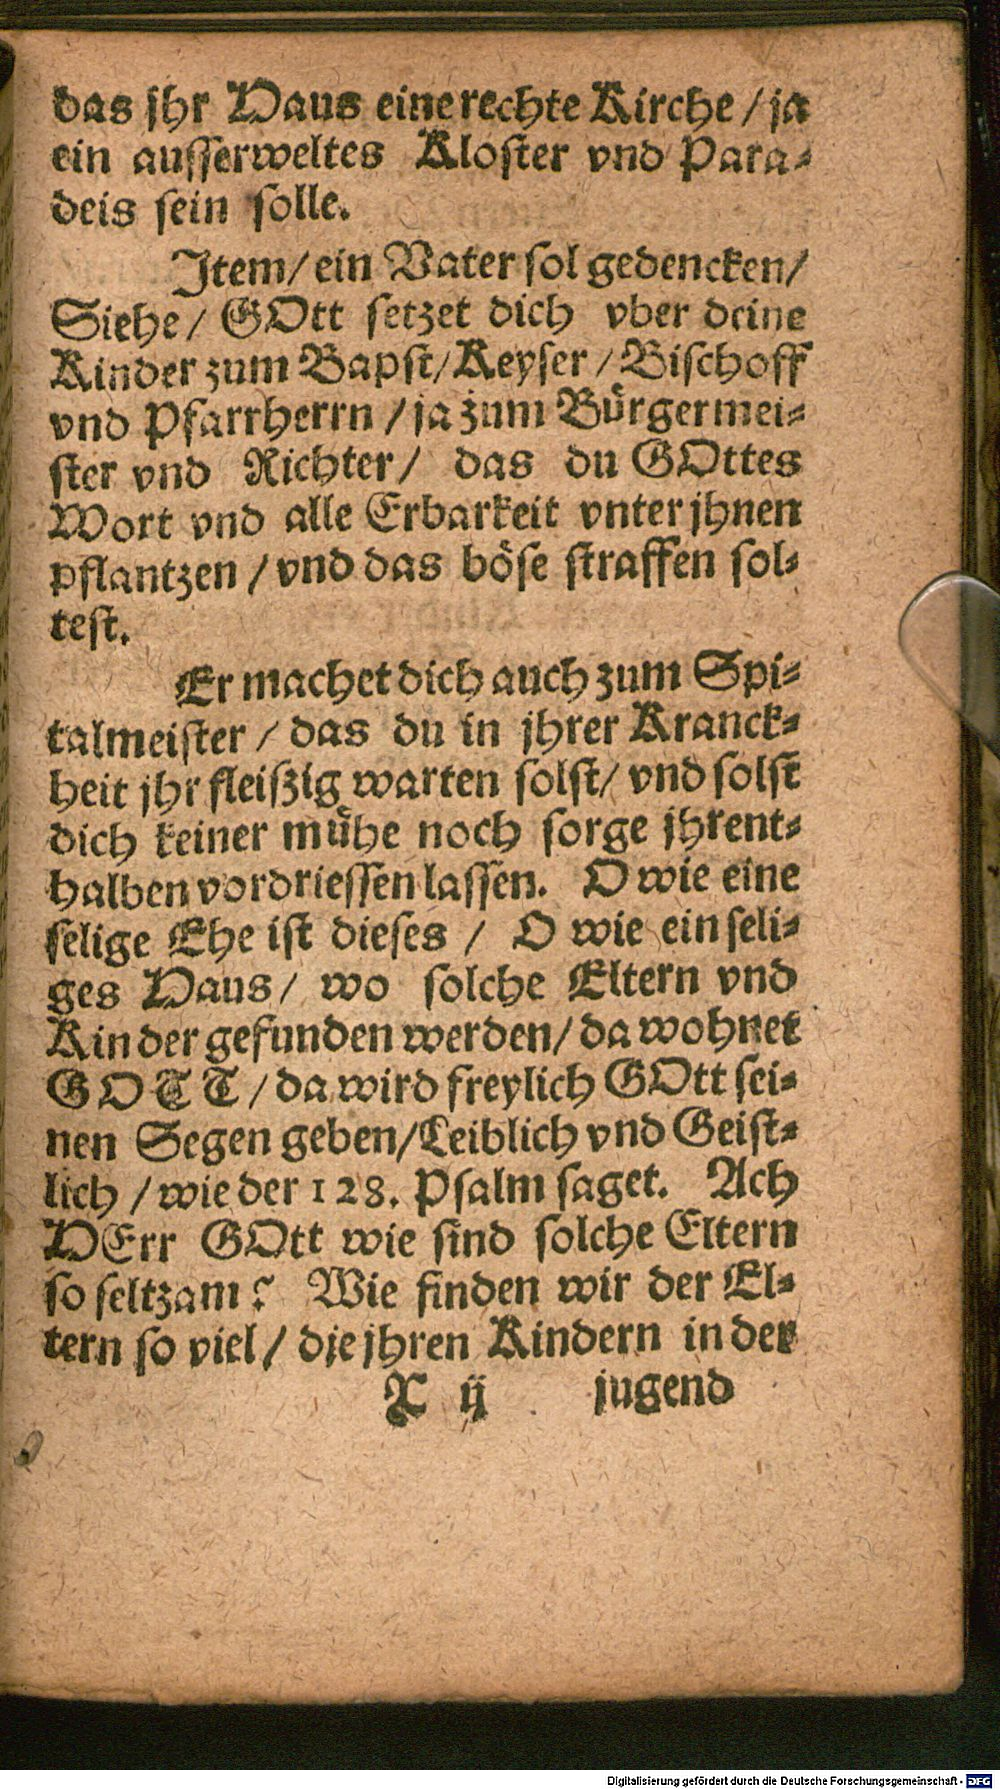 das jhr Haus eine rechte Kirche / ja
ein ausserweltes Kloster vnd Para-
deis sein solle.
Item / ein Vater sol gedencken /
Siehe / GOtt setzet dich vber deine
Kinder zum Bapst / Keyser / Bischoff
vnd Pfarrherrn / ja zum Bürgermei-
ster vnd Richter / das du GOttes
Wort vnd alle Erbarkeit vnter jhnen
pflantzen / vnd das böse straffen sol-
test.
Er machet dich auch zum Spi-
talmeister / das du in jhrer Kranck-
heit jhr fleiszig warten solst / vnd solst
dich keiner mühe noch sorge jhrent-
halben vordriessen lassen. O wie eine
selige Ehe ist dieses / O wie ein seli-
ges Haus / wo solche Eltern vnd
Kinder gefunden werden / da wohnet
GOTT / da wird freylich GOtt sei-
nen Segen geben / Leiblich vnd Geist-
lich / wie der 128. Psalm saget. Ach
HErr GOtt wie sind solche Eltern
so seltzam? Wie finden wir der El-
tern so viel / die jhren Kindern in der
X ij jugend
Digitalisierung gefördert durch die Deutsche Forschungsgemeinschaft - DFG